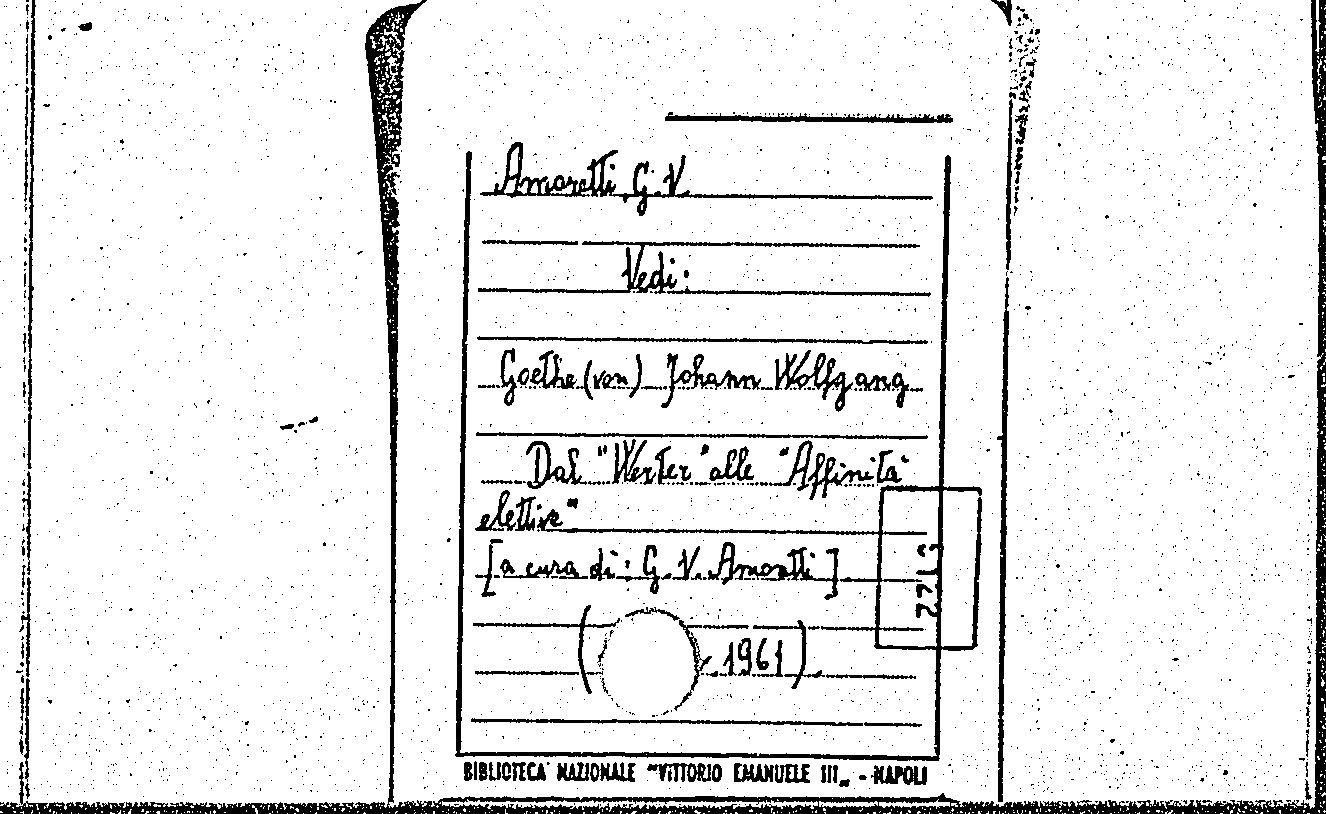 Amoretti, G. V.
Vedi:
Goethe (von) Johann Wolfgang
Dal "Werter" alle "Affinità
elettive"
[a cura di: G. V. Amoretti]
( 1961).
BIBLIOTECA NAZIONALE "VITTORIO EMANUELE III„ - NAPOLI